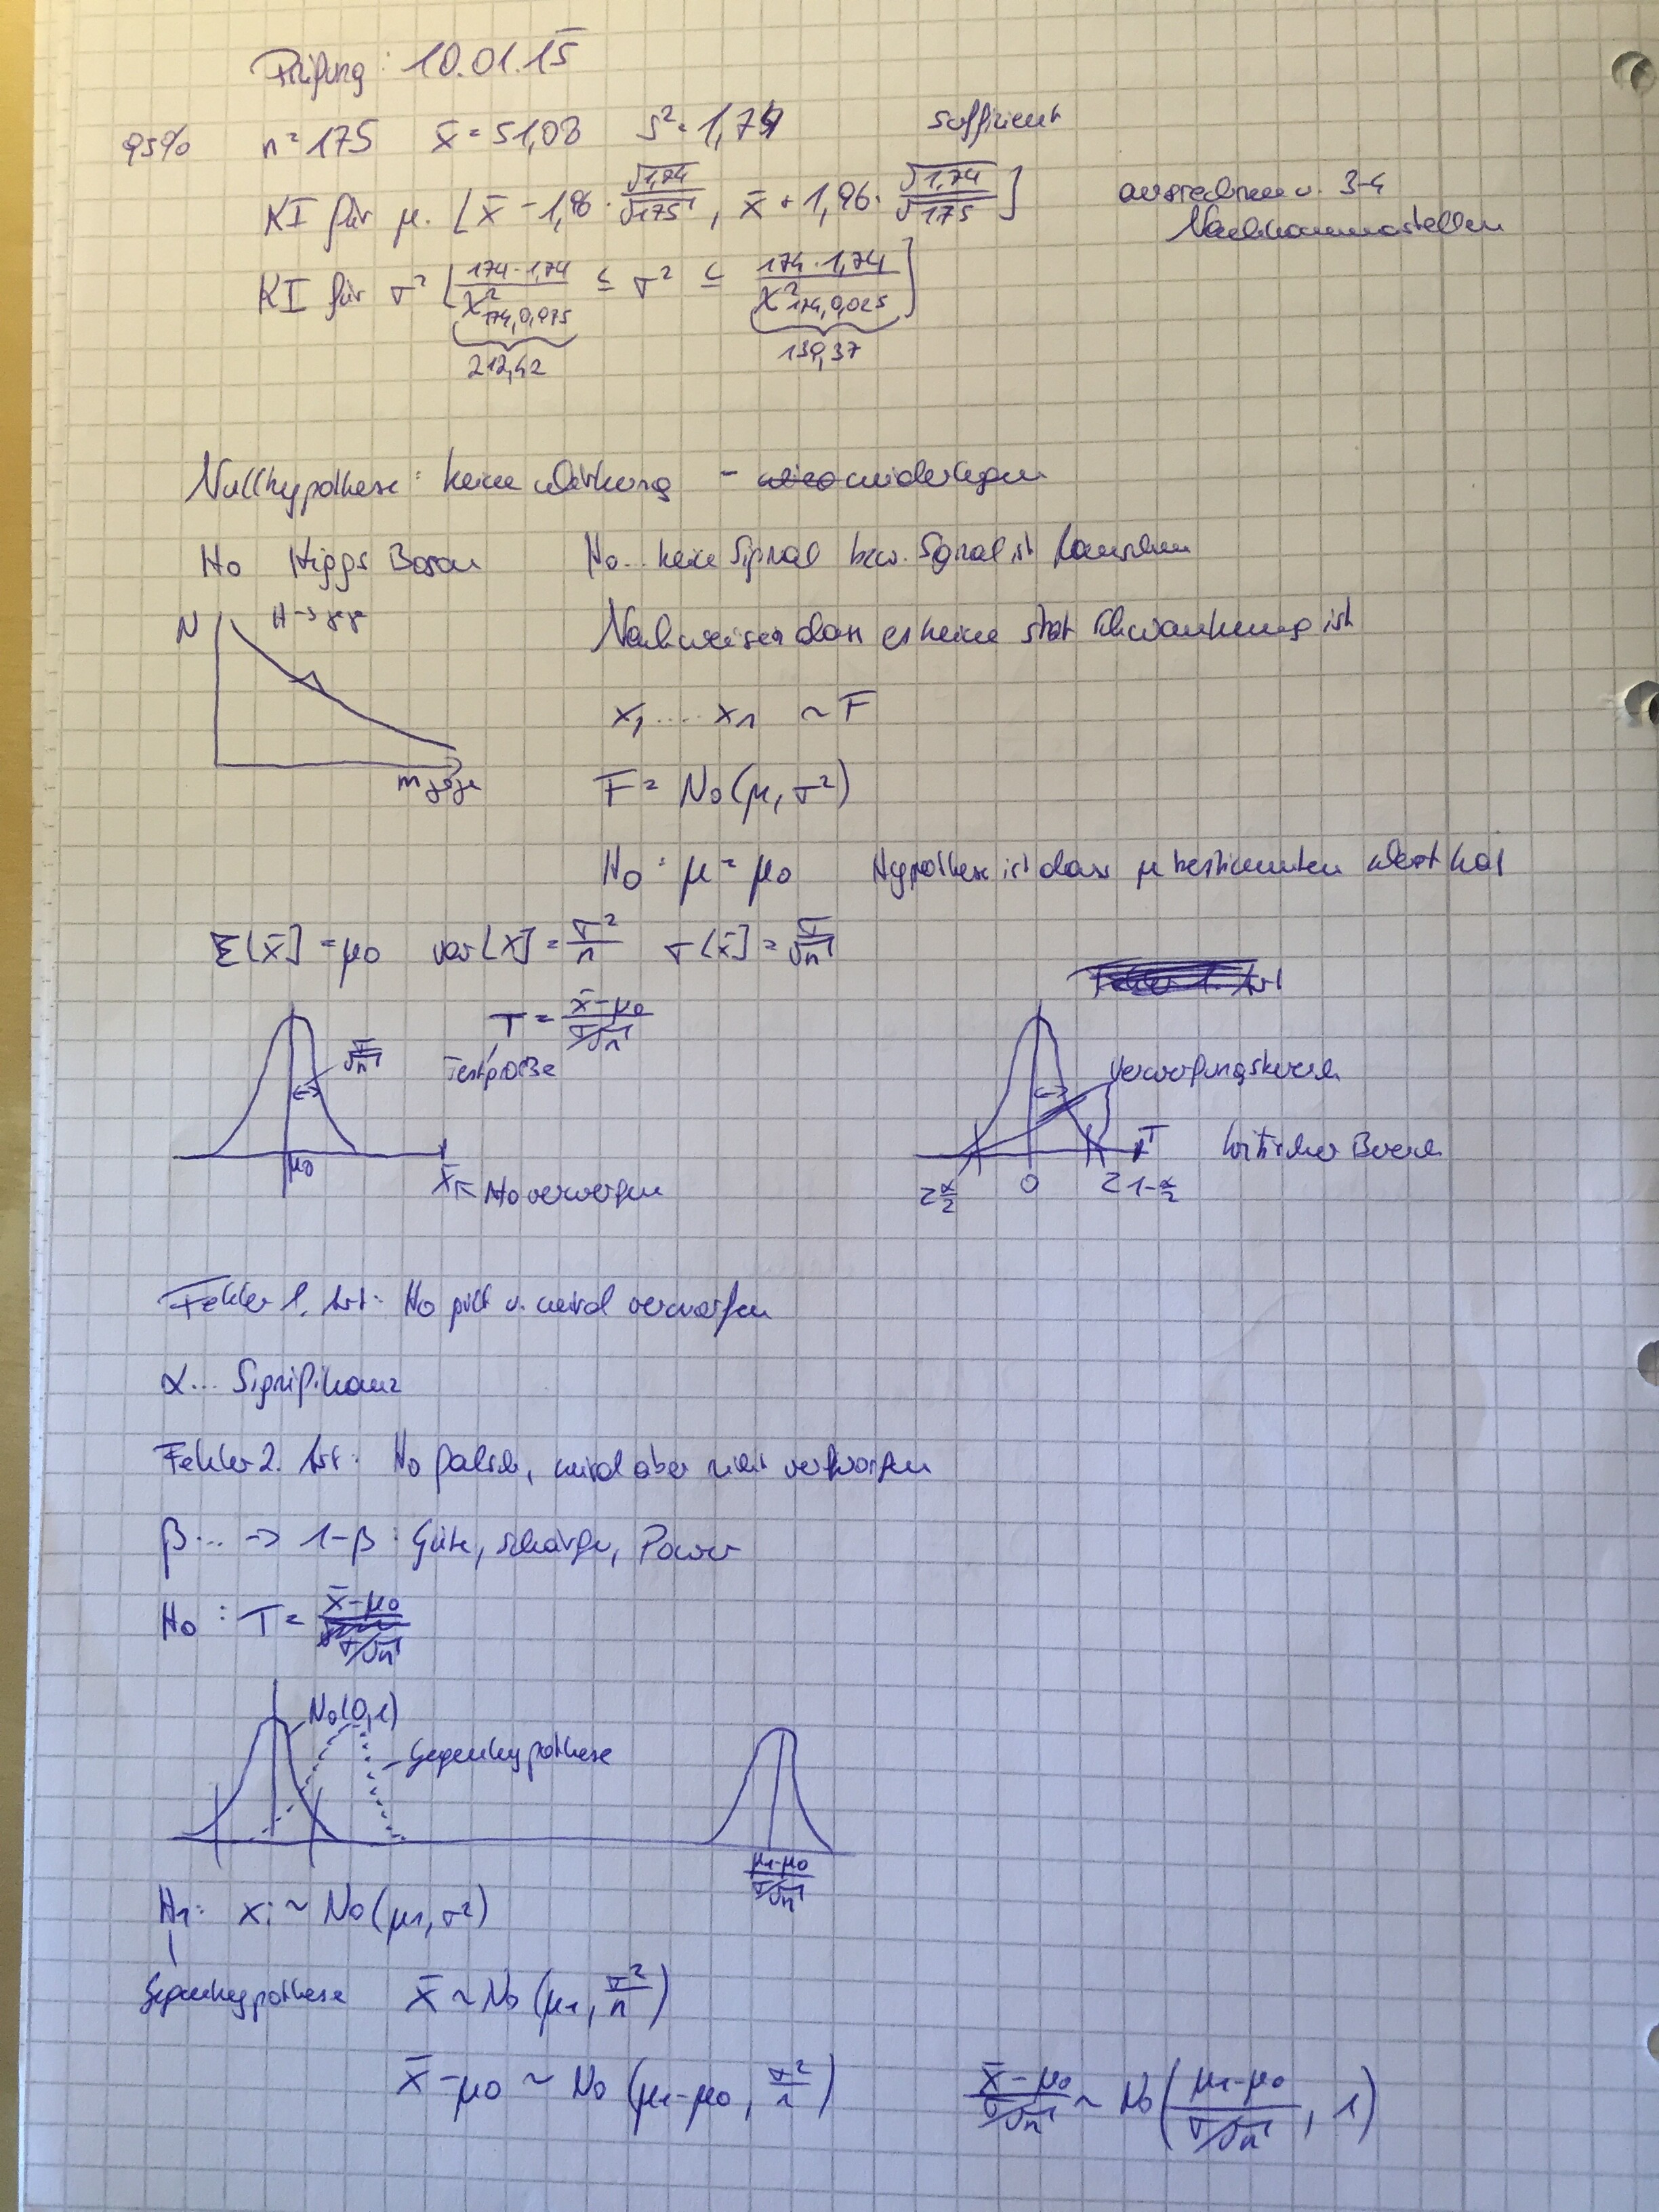 Prüfung: 10.01.15
95% n=175 x̄=51,08 s²=1,74 suffizient
KI für μ. [x̄ - 1,96 · √1,74/√175, x̄ + 1,96 · √1,74/√175] ausrechnen v. 3-4 Nachkommastellen
KI für σ² [174·1,74/χ²174,0,975 ≤ σ² ≤ 174·1,74/χ²174,0,025]
212,42 139,37
Nullhypothese: keine Wirkung - widerlegen
H0 Higgs Boson H0... kein Signal bzw. Signal ist Rauschen
N H→γγ Nachweisen dass es keine stat Schwankung ist
x1,.... xn ~ F
mγγ F = No(μ, σ²)
H0: μ = μ0 Hypothese ist dass μ bestimmten Wert hat
E[x̄] = μ0 var[x̄] = σ²/n σ[x̄] = σ/√n
Fehler 1. Art
σ/√n T = (x̄-μ0)/(σ/√n)
Testgröße Verwerfungsbereich
T kritischer Bereich
μ0 x̄ ← H0 verwerfen zα/2 0 z1-α/2
Fehler 1. Art: H0 gilt u. wird verworfen
α... Signifikanz
Fehler 2. Art: H0 falsch, wird aber nicht verworfen
β... → 1-β: Güte, schärfe, Power
H0: T = (x̄-μ0)/(σ/√n)
No(0,1)
Gegenhypothese
(μ1-μ0)/(σ/√n)
H1: xi ~ No(μ1, σ²)
Gegenhypothese x̄ ~ No(μ1, σ²/n)
x̄-μ0 ~ No(μ1-μ0, σ²/n) (x̄-μ0)/(σ/√n) ~ No((μ1-μ0)/(σ/√n), 1)